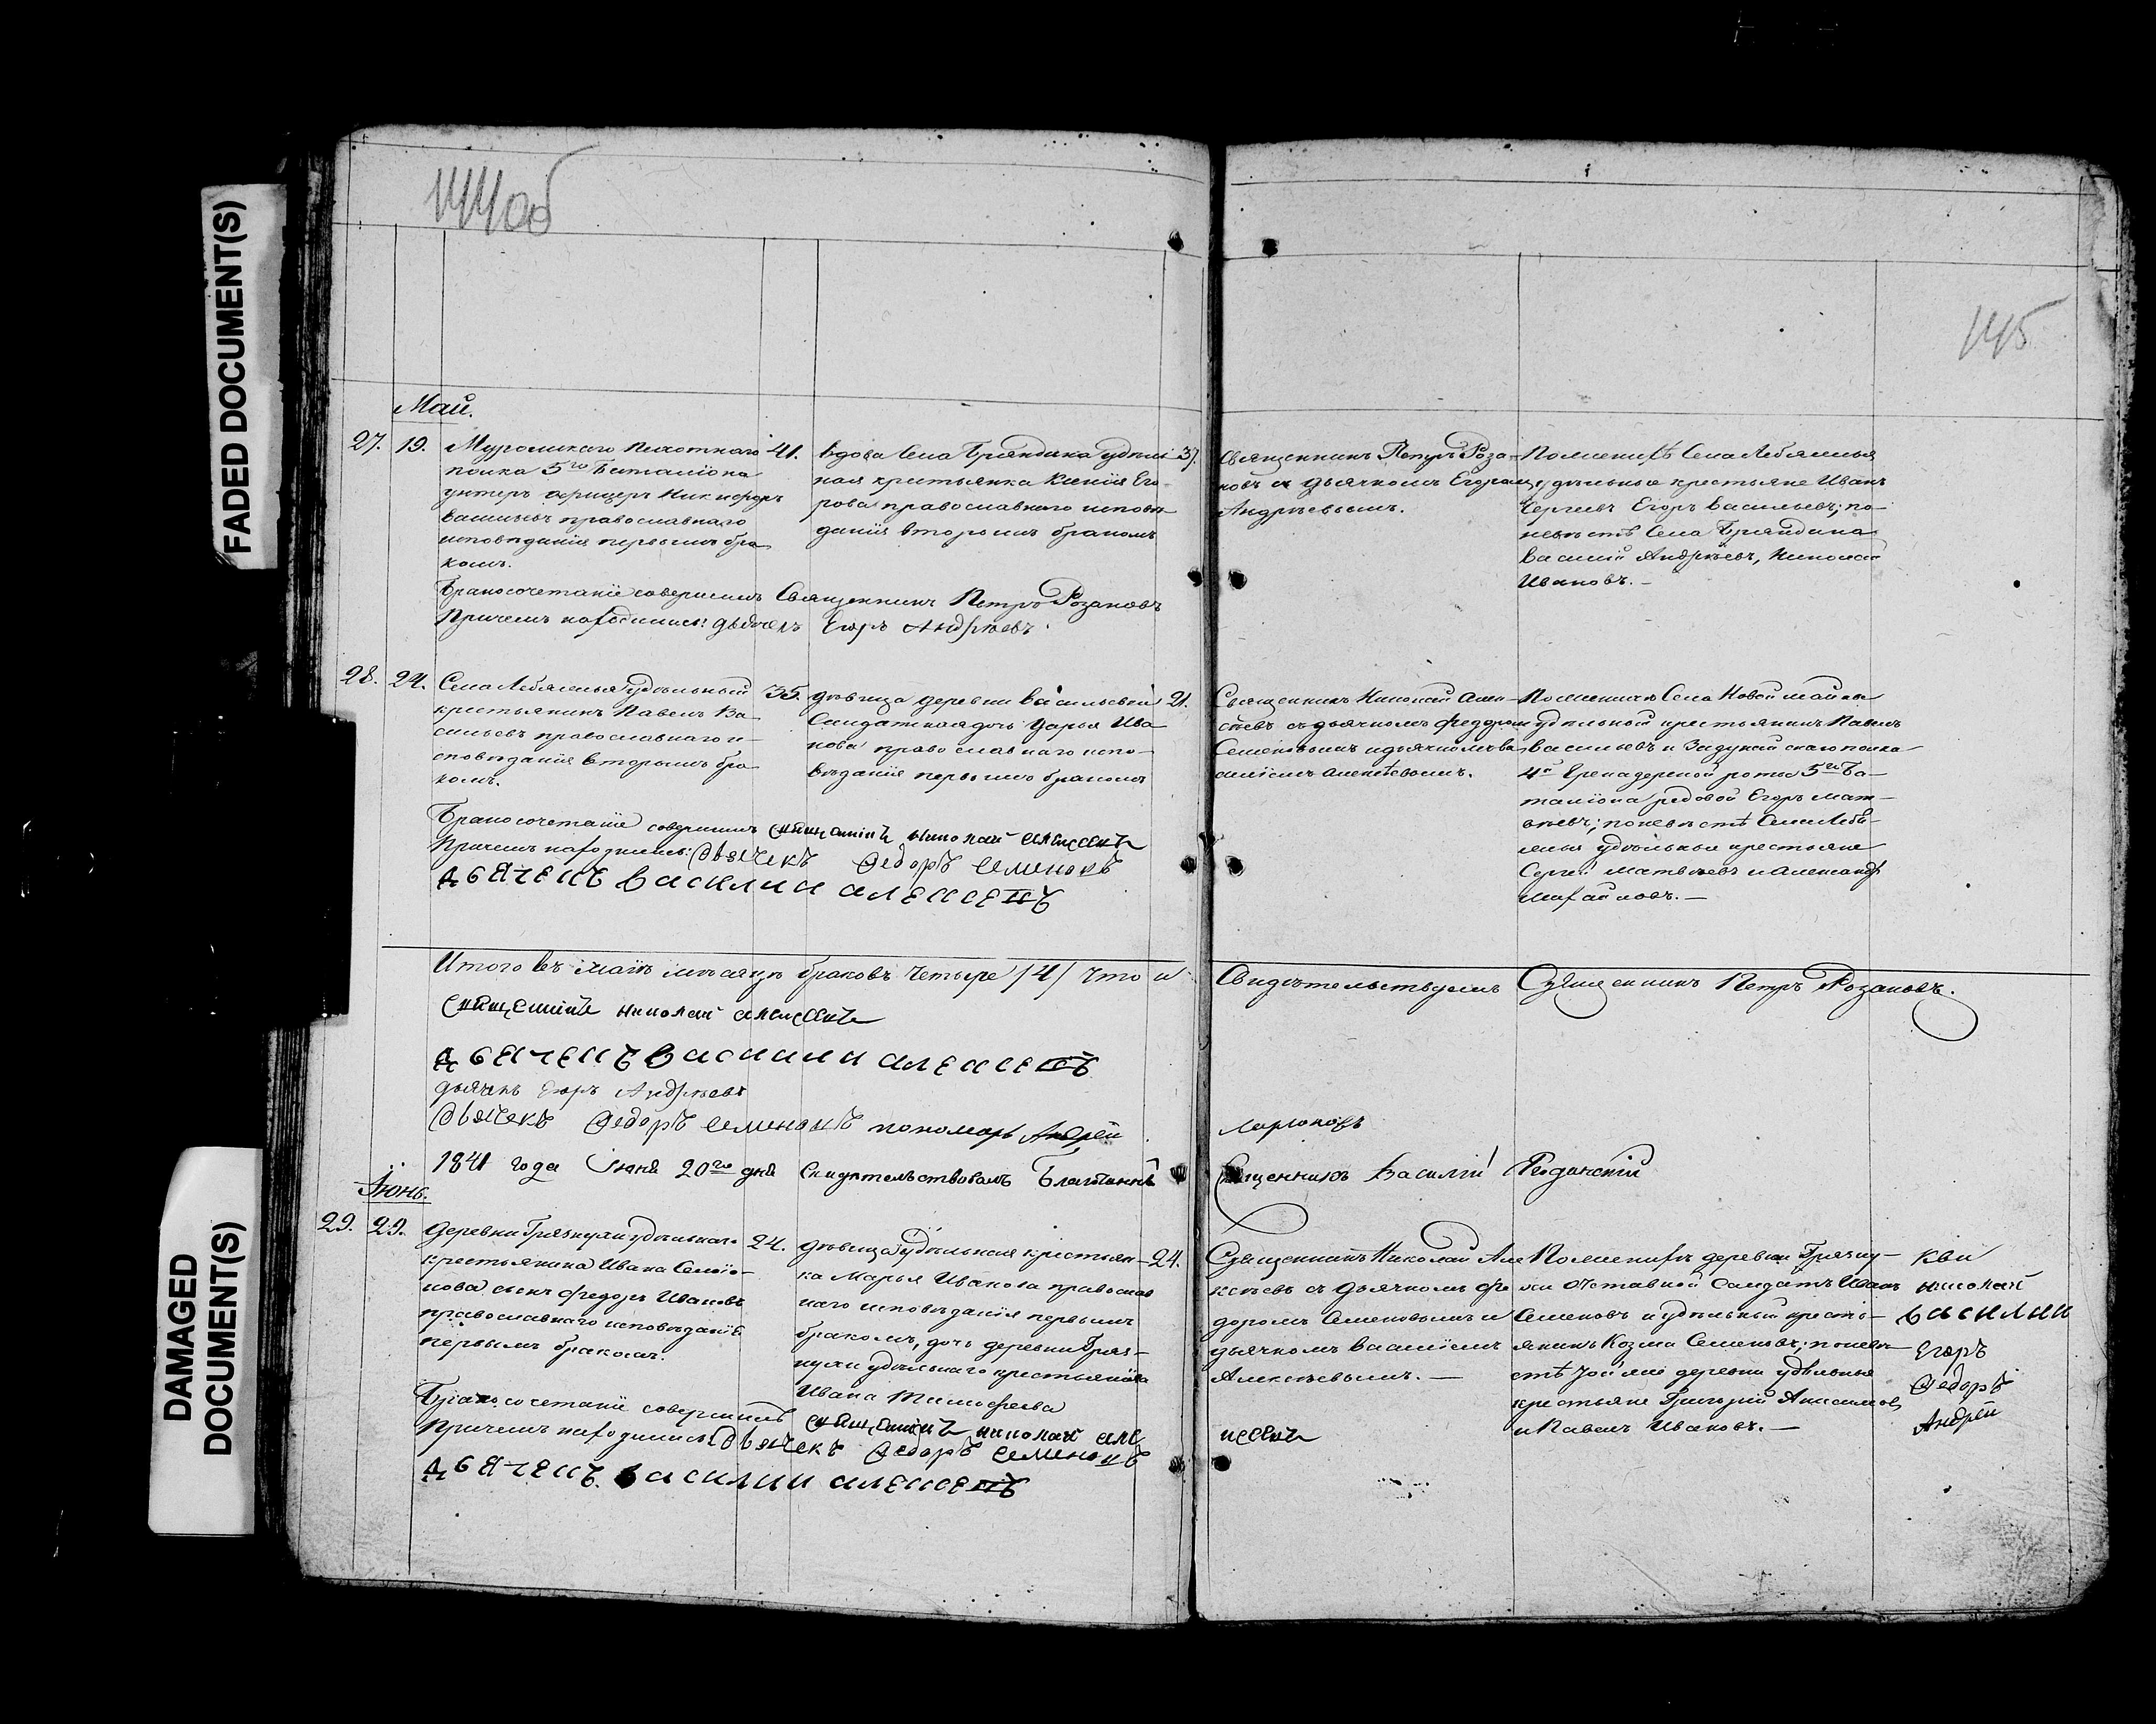 FADED DOCUMENT(S)
DAMAGED
DOCUMENT(S)
144об
145
Май.
27. 19. Муромскаго пехотнаго 41.
полка 5го Баталіона
унтеръ офицеръ Никифоръ
православнаго
исповѣданія первымъ бра
комъ.
вдова Села Бряндина удѣль 37.
ная крестьянка Ксенія Его
рова православнаго исповѣ
данія вторымъ бракомъ
Священникъ Петръ Роза
новъ съ дьячкомъ Егоромъ
Андрѣевымъ.
По женихѣ Села Лебяжья
удѣльные крестьяне Иванъ
Сергѣевъ Егоръ Васильевъ; по
невѣстѣ Села Бряндина
Василій Андрѣевъ, Николай
Ивановъ. —
Бракосочетаніе совершилъ Священникъ Петръ Розановъ
Причемъ находились: дьячекъ Егоръ Андрѣевъ.
28. 24. Села Лебяжья удѣльный 35.
крестьянинъ Павелъ Ва
сильевъ православнаго и
сповѣданія вторымъ бра
комъ.
дѣвица деревни Васильевки 21.
Солдатская дочь Дарья Ива
нова православнаго испо
вѣданія первымъ бракомъ
Священникъ Николай Алек
сѣевъ съ дьячкомъ Федоромъ
Семеновымъ и дьячкомъ Ва
силіемъ Алексѣевымъ.
По женихѣ Села Новой майны
удѣльной крестьянинъ Павелъ
Васильевъ и Задунайскаго полка
4й Гренадерской роты 5го Ба
таліона рядовой Егоръ Мат
вѣевъ; по невѣстѣ Села Лебя
жья удѣльные крестьяне
Сергѣй Матвѣевъ и Александръ
Михайловъ. —
Бракосочетаніе совершилъ священникъ николай алексеевъ
Причемъ находились: Дьячекъ Федоръ Семеновъ
дьячекъ василии алексеевъ
Итого въ маѣ мѣсяцѣ браковъ четыре /4/ что и
Свидѣтельствуемъ Священникъ Петръ Розановъ.
священникъ николай алексеевъ
дьячекъ василии алексеевъ
дьячекъ Егоръ Андрѣевъ
Дьячекъ Федоръ Семеновъ пономарь Андрей
Ларіоновъ
1841 года Іюня 20го дня Свидѣтельствовалъ Благочинный
Священникъ Василій
Іюнь.
29. 29. Деревни Грязнухи удѣльнаго 24.
крестьянина Ивана Семіо
нова сынъ Федоръ Ивановъ
православнаго исповѣданія
первымъ бракомъ.
дѣвица удѣльная крестьян 24.
ка Марья Иванова православ
наго исповѣданія первымъ
бракомъ, дочь деревни Гряз
нухи удѣльнаго крестьянина
Ивана Тимофеева
Священникъ Николай Але
ксѣевъ съ дьячкомъ Фе
доромъ Семеновымъ и
дьячкомъ Василіемъ
Алексѣевымъ. —
По женихѣ деревни Грязну
хи отставной Солдатъ Иванъ
Семеновъ и удѣльный кресть
янинъ Козма Семеновъ; по невѣ
стѣ той же деревни удѣльные
крестьяне Григорій Анисимовъ
и Павелъ Ивановъ. —
николай
василии
Егоръ
Федоръ
Андрей
Бракосочетаніе совершилъ священникъ николай але
ксеевъ
Причемъ находились: Дьячекъ Федоръ Семеновъ
дьячекъ василии алексеевъ